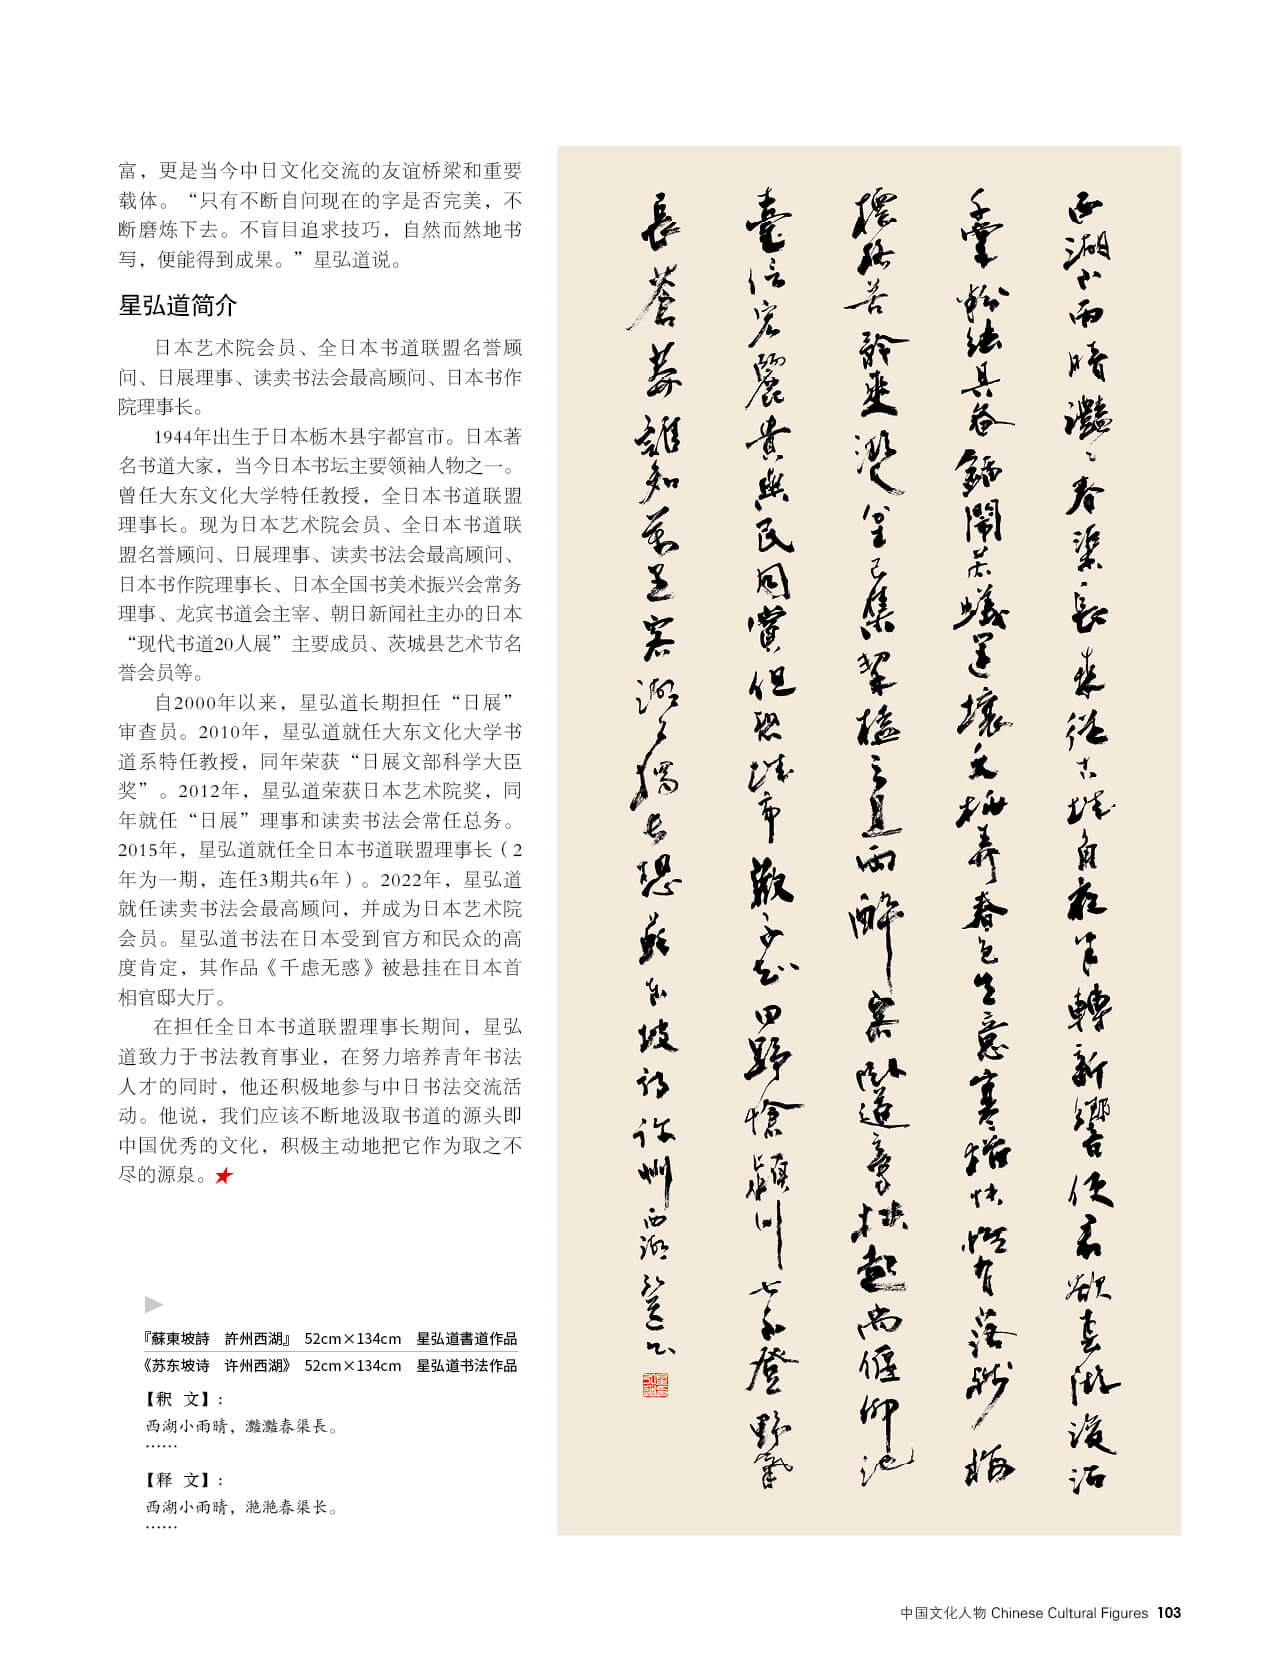 富，更是当今中日文化交流的友谊桥梁和重要
载体。“只有不断自问现在的字是否完美，不
断磨炼下去。不盲目追求技巧，自然而然地书
写，便能得到成果。”星弘道说。
星弘道简介
日本艺术院会员、全日本书道联盟名誉顾
问、日展理事、读卖书法会最高顾问、日本书作
院理事长。
1944年出生于日本栃木县宇都宫市。日本著
名书道大家，当今日本书坛主要领袖人物之一。
曾任大东文化大学特任教授，全日本书道联盟
理事长。现为日本艺术院会员、全日本书道联
盟名誉顾问、日展理事、读卖书法会最高顾问、
日本书作院理事长、日本全国书美术振兴会常务
理事、龙宾书道会主宰、朝日新闻社主办的日本
“现代书道20人展”主要成员、茨城县艺术节名
誉会员等。
自2000年以来，星弘道长期担任“日展”
审查员。2010年，星弘道就任大东文化大学书
道系特任教授，同年荣获“日展文部科学大臣
奖”。2012年，星弘道荣获日本艺术院奖，同
年就任“日展”理事和读卖书法会常任总务。
2015年，星弘道就任全日本书道联盟理事长（2
年为一期，连任3期共6年）。2022年，星弘道
就任读卖书法会最高顾问，并成为日本艺术院
会员。星弘道书法在日本受到官方和民众的高
度肯定，其作品《千虑无惑》被悬挂在日本首
相官邸大厅。
在担任全日本书道联盟理事长期间，星弘
道致力于书法教育事业，在努力培养青年书法
人才的同时，他还积极地参与中日书法交流活
动。他说，我们应该不断地汲取书道的源头即
中国优秀的文化，积极主动地把它作为取之不
尽的源泉。
『蘇東坡詩　許州西湖』 52cm×134cm　星弘道書道作品
《苏东坡诗　许州西湖》 52cm×134cm　星弘道书法作品
【釈 文】：
西湖小雨晴，灩灩春渠長。
……
【释 文】：
西湖小雨晴，滟滟春渠长。
……
西湖小雨晴灩〻春渠長来從古城角夜半轉新響使君欲春游浚沼
千掌紛紜具畚鍤鬧若蟻運壤夭桃弄春色生意寒猶怏惟有落殘梅
標格若矜爽遊人坌已集挈榼三且兩醉客臥道傍扶起尚偃仰池
臺信宏麗貴與民同賞但恐城市歡不知田野愴潁川七不登野氣
長蒼莽誰知萬里客湖上獨長想蘇東坡詩許州西湖
中国文化人物 Chinese Cultural Figures 103